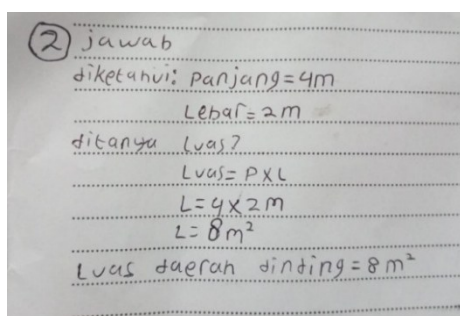 ② jawab
diketahui: panjang = 4m
Lebar = 2m
ditanya Luas?
Luas = P x L
L = 4 x 2 m
L = 8 m²
Luas daerah dinding = 8 m²